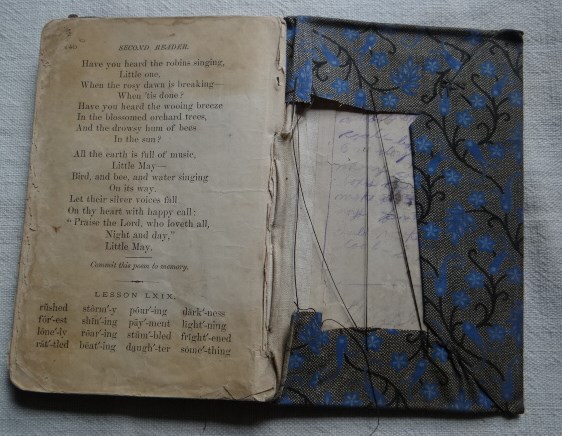 SECOND READER.
Have you heard the robins singing,
Little one,
When the rosy dawn is breaking—
When 'tis done?
Have you heard the wooing breeze
In the blossomed orchard trees,
And the drowsy hum of bees
In the sun?
All the earth is full of music,
Little May—
Bird, and bee, and water singing
On its way.
Let their silver voices fall
On thy heart with happy call:
"Praise the Lord, who loveth all,
Night and day,"
Little May.
Commit this poem to memory.
LESSON LXIX.
rŭshed stôrm'-y pōur'-ing därk'-ness
fŏr'-est shīn'-ing pāy'-ment light'-ning
lōne'-ly rōar'-ing stŭm'-bled fright'-ened
răt'-tled bēat'-ing daugh'-ter some'-thing